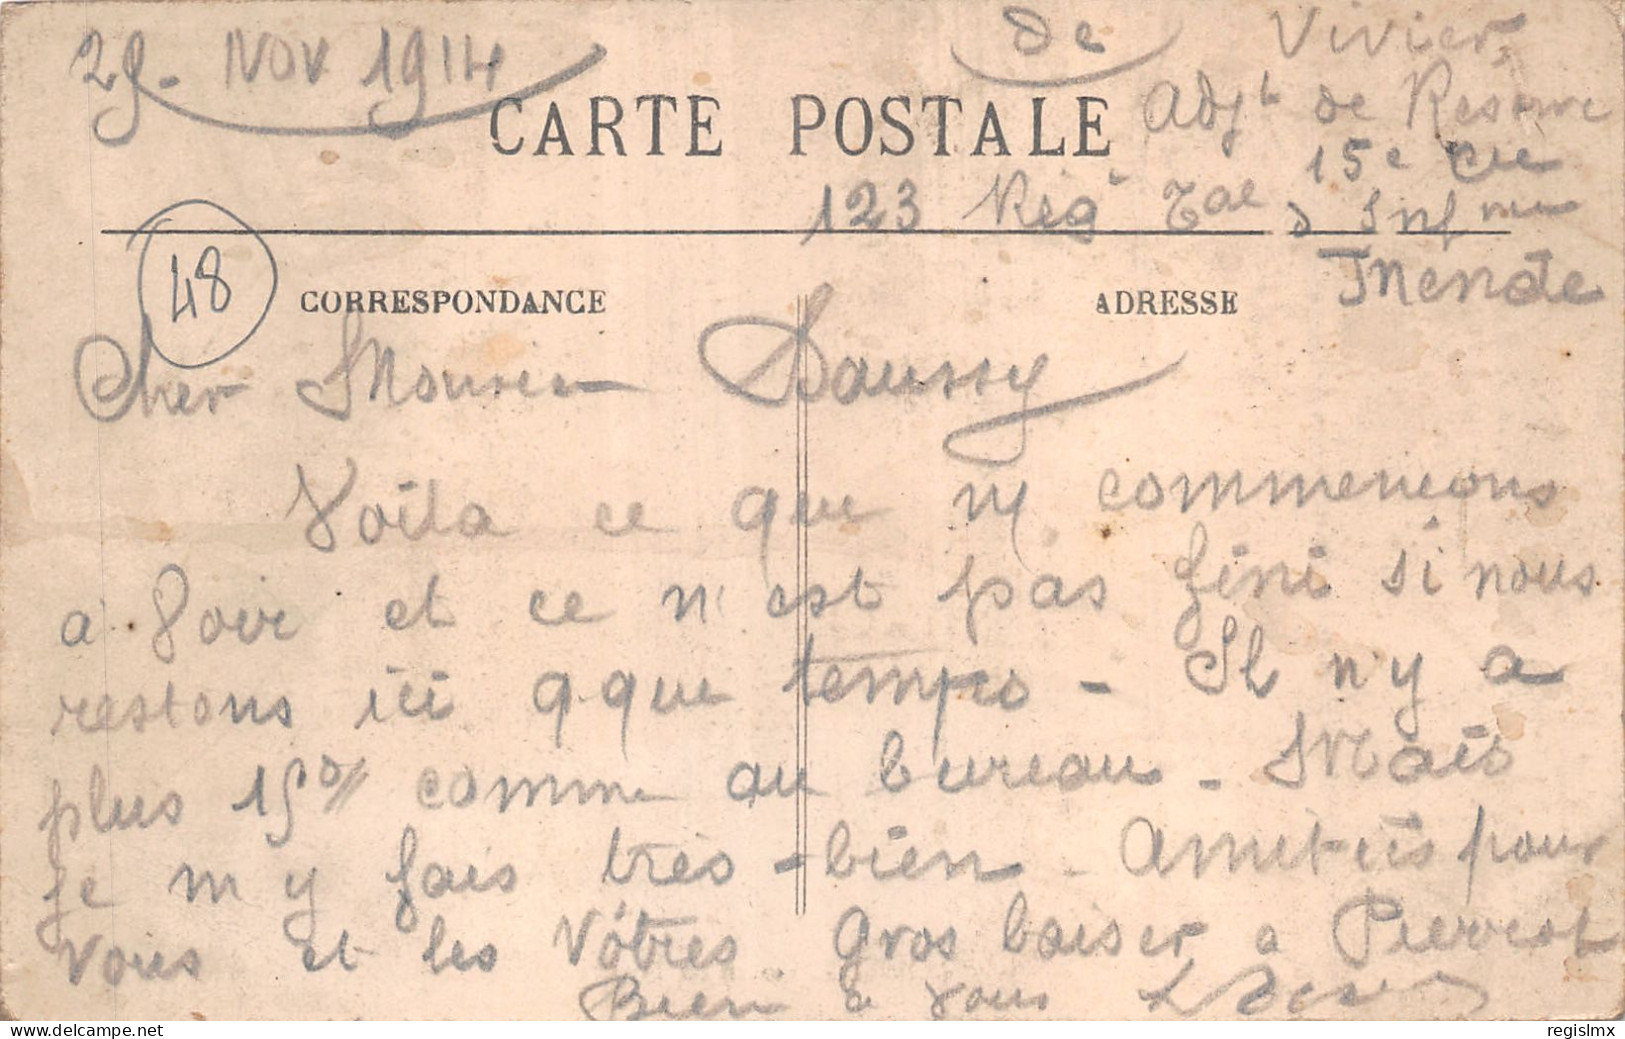 29 - Nov 1914
de Vivier
Adjt de Reserve
CARTE POSTALE
15e Cie
123 Régt Tal d'Infrie
Mende
48
CORRESPONDANCE
ADRESSE
Cher Monsieur Daussy
Voila ce que ns commençons
a voir et ce n'est pas fini si nous
restons ici qque temps - Il n'y a
plus 15° comme au bureau - Mais
je m'y fais très-bien - Amitiés pour
vous et les Vôtres. Gros baiser a Pierrot
Bien à vous
regislmx
Delcampe.net